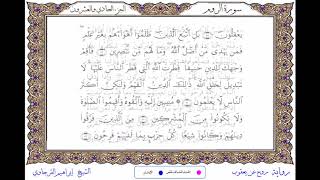 سورة الروم
الجزء الحادي والعشرون
يَعْقِلُونَ بَلِ ٱتَّبَعَ ٱلَّذِينَ ظَلَمُوٓا۟ أَهْوَآءَهُم بِغَيْرِ عِلْمٍ
فَمَن يَهْدِى مَنْ أَضَلَّ ٱللَّهُ وَمَا لَهُم مِّن نَّـٰصِرِينَ فَأَقِمْ
وَجْهَكَ لِلدِّينِ حَنِيفًا فِطْرَتَ ٱللَّهِ ٱلَّتِى فَطَرَ ٱلنَّاسَ عَلَيْهَا لَا
تَبْدِيلَ لِخَلْقِ ٱللَّهِ ذَٰلِكَ ٱلدِّينُ ٱلْقَيِّمُ وَلَـٰكِنَّ أَكْثَرَ
ٱلنَّاسِ لَا يَعْلَمُونَ مُنِيبِينَ إِلَيْهِ وَٱتَّقُوهُ وَأَقِيمُوا۟ ٱلصَّلَوٰةَ
وَلَا تَكُونُوا۟ مِنَ ٱلْمُشْرِكِينَ مِنَ ٱلَّذِينَ فَرَّقُوا۟
دِينَهُمْ وَكَانُوا۟ شِيَعًا كُلُّ حِزْبٍ بِمَا لَدَيْهِمْ فَرِحُونَ
رواية روح عن يعقوب
الشيخ إبراهيم